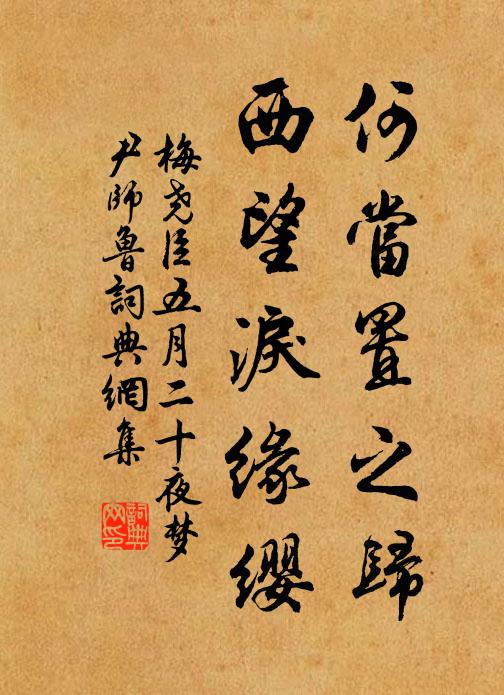 何當置之歸
西望淚緣纓
梅尧臣五月二十夜梦
尹師魯詞典網集
詞典网印